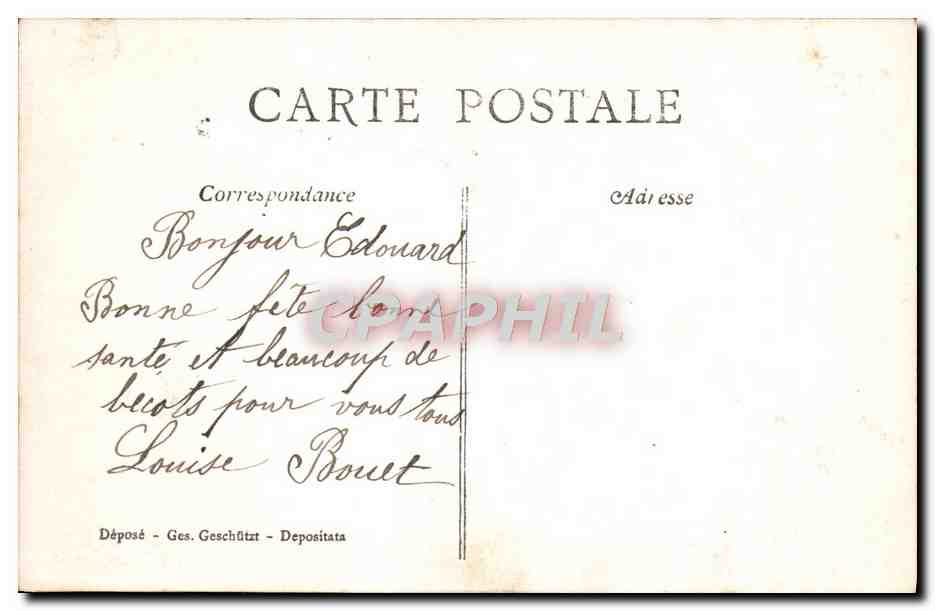 CARTE POSTALE
Correspondance
Adresse
Bonjour Edouard
Bonne fête bonne
santé et beaucoup de
becots pour vous tous
Louise Bouet
Déposé - Ges. Geschützt - Depositata
CPAPHIL